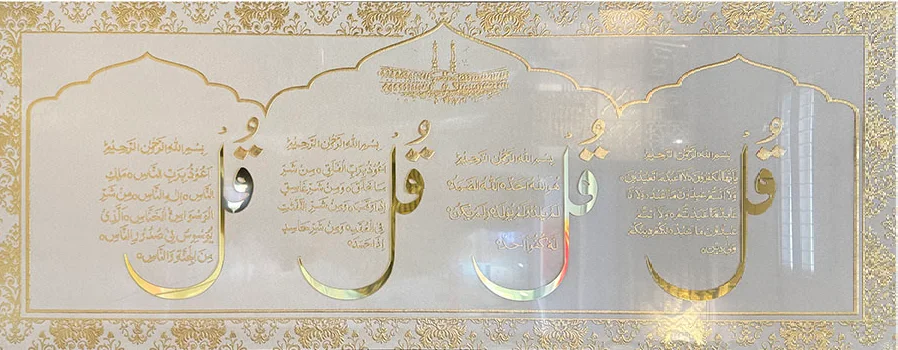 قُلْ
بسم الله الرحمن الرحيم
يايها الكفرون لا اعبد ما تعبدون
ولا انتم عبدون ما اعبد ولا انا
عابد ما عبدتم ولا انتم
عبدون ما اعبد لكم دينكم
ولي دين
قُلْ
بسم الله الرحمن الرحيم
هو الله احد الله الصمد
لم يلد ولم يولد ولم يكن
له كفوا احد
قُلْ
بسم الله الرحمن الرحيم
اعوذ برب الفلق من شر
ما خلق ومن شر غاسق
اذا وقب ومن شر النفثت
في العقد ومن شر حاسد
اذا حسد
قُلْ
بسم الله الرحمن الرحيم
اعوذ برب الناس ملك
الناس اله الناس من شر
الوسواس الخناس الذي
يوسوس في صدور الناس
من الجنة والناس